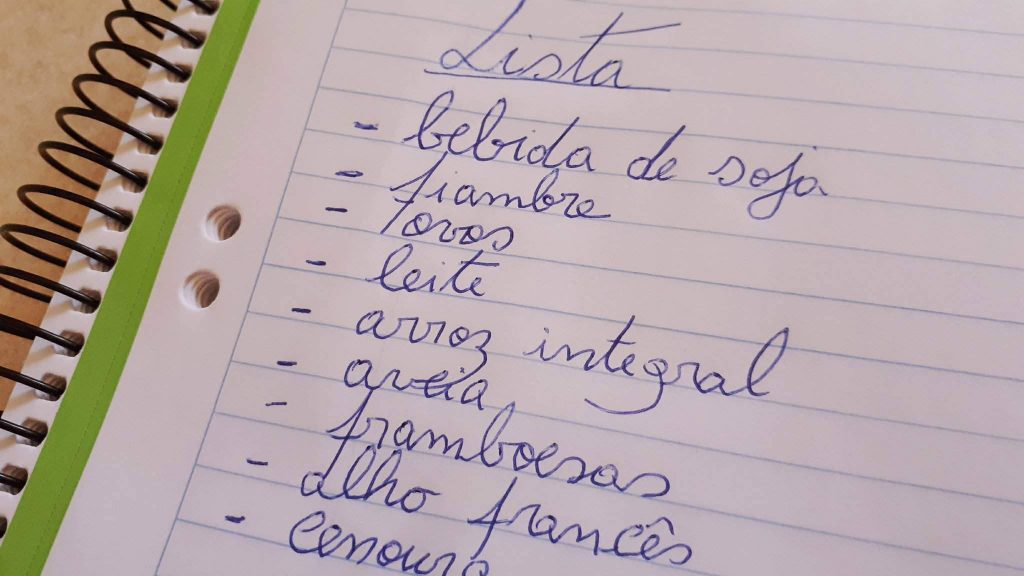 Lista
- bebida de soja
- fiambre
- ovos
- leite
- arroz integral
- aveia
- framboesas
- alho francês
- cenoura